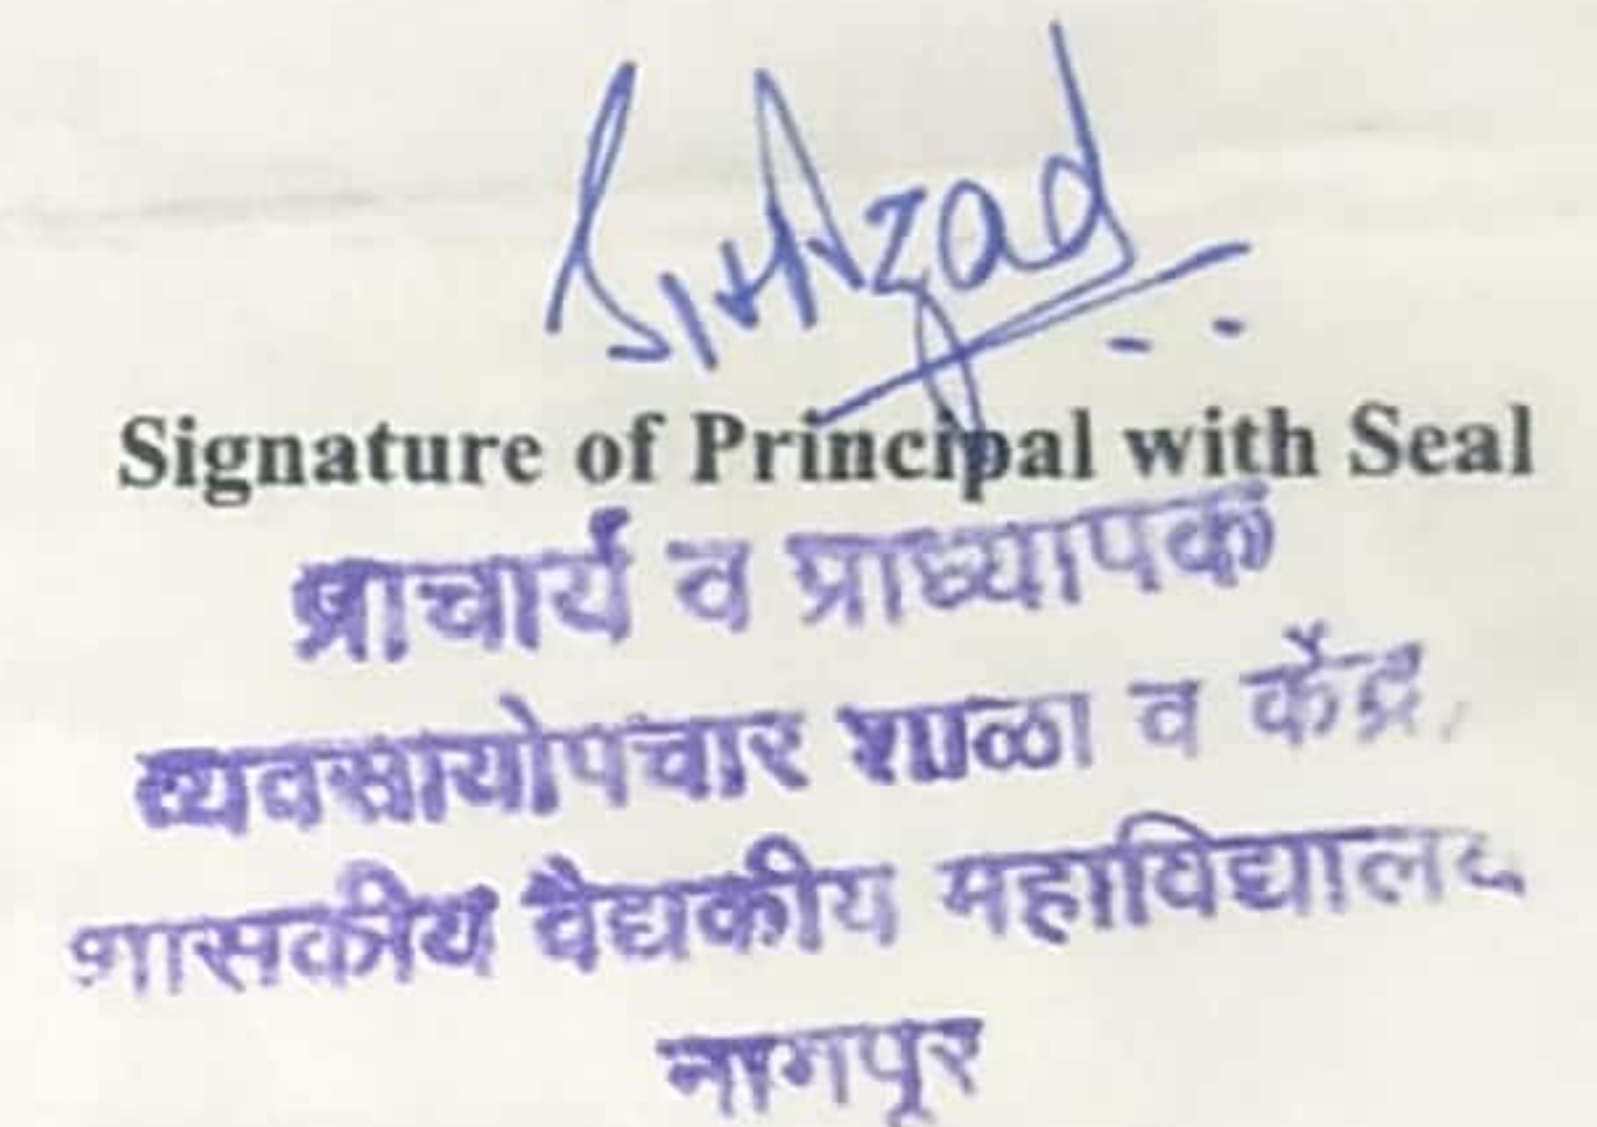 S.H.Azad
Signature of Principal with Seal
प्राचार्य व प्राध्यापक
व्यवसायोपचार शाळा व केंद्र,
शासकीय वैद्यकीय महाविद्यालय
नागपूर